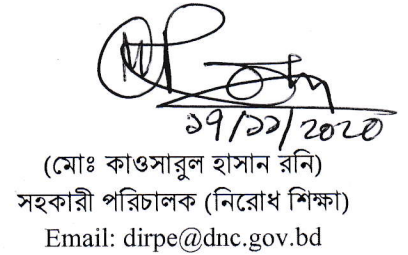 ১৭/১১/২০২০
(মোঃ কাওসারুল হাসান রনি)
সহকারী পরিচালক (নিরোধ শিক্ষা)
Email: dirpe@dnc.gov.bd